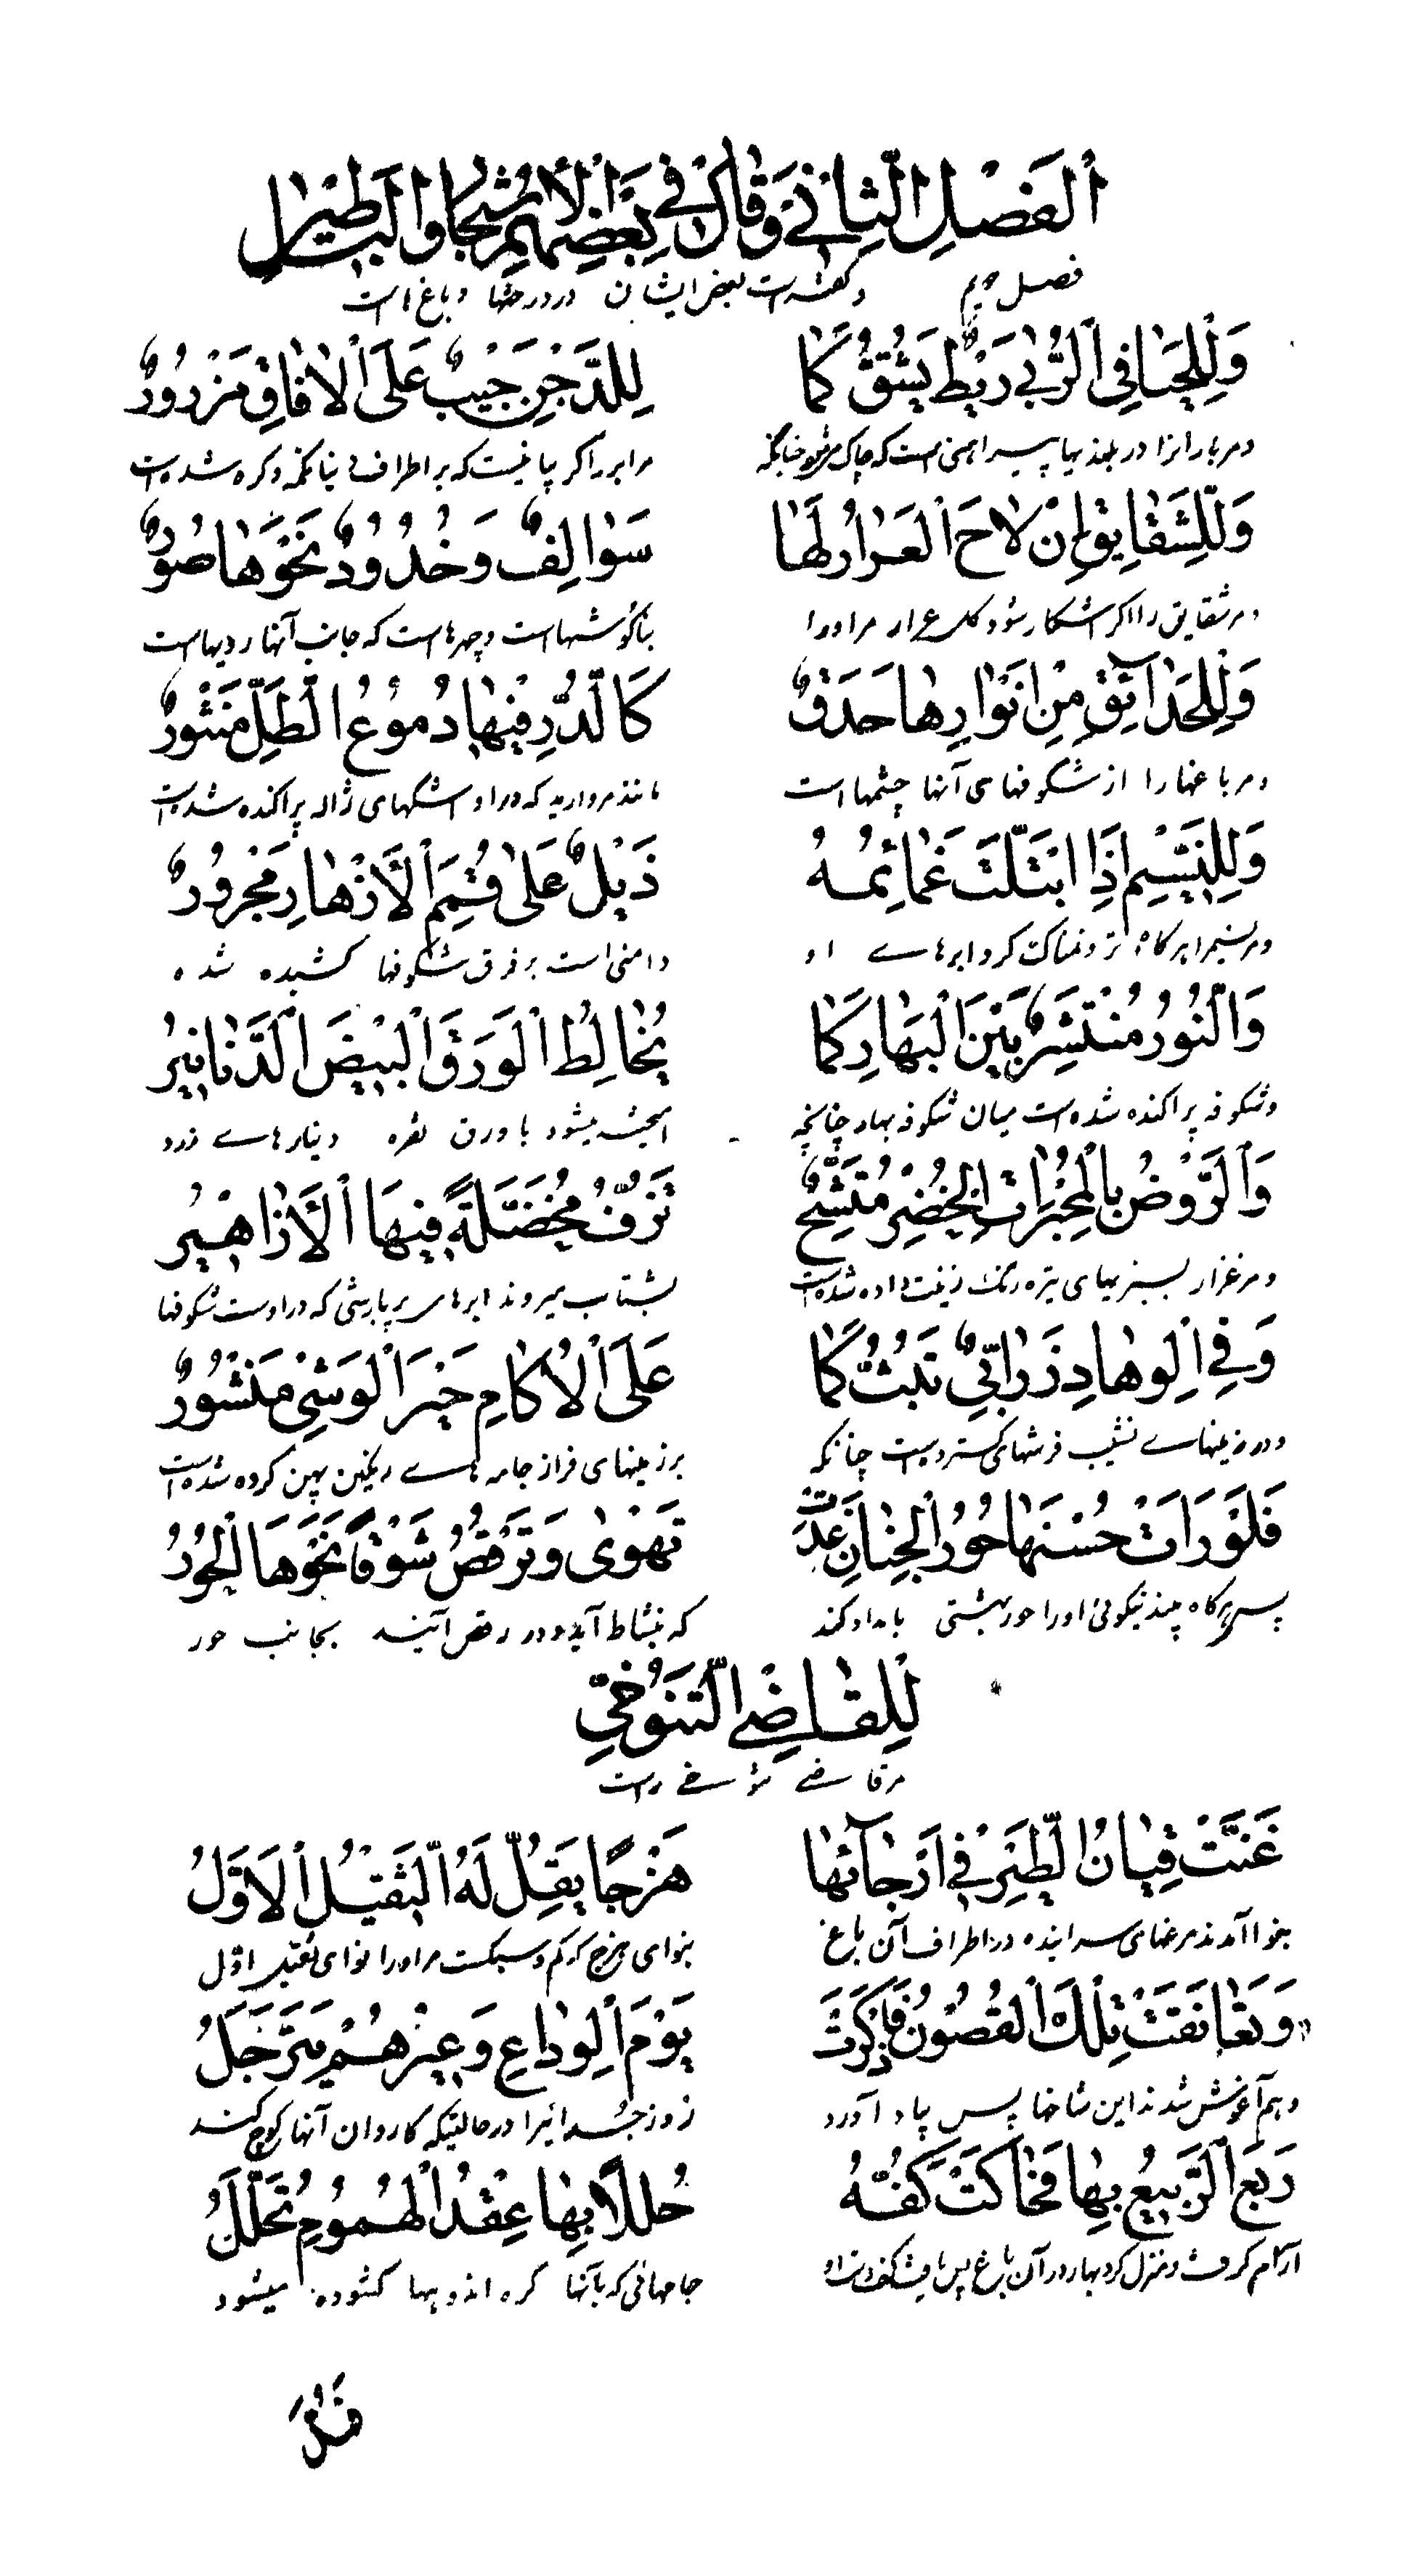 اَلفَصْلِ الثَّانِيْ وَقَالَ فِيْ بَعْضِهِمْ الْأَشْجَارِ وَالْبَسَاطِيْرِ
فصل دویم وگفته است بعض ایشان در درختها و باغ است
وَلِلْحَيَا فِي الرُّبٰى رَيْطٌ يُشَقُّ كَمَا لِلدَّجْنِ جَيْبٌ عَلَى الْاٰفَاقِ مَزْرُورٌ
ومر بارانرا در بلندیها پیراهنی است که چاک میشود چنانکه مر ابر را گریبانیست که بر اطراف تکمه و گره شده است
وَلِلشَّقَايِقِ اِنْ لَاحَ الْعَرَارُ لَهَا سَوَالِفٌ وَخُدُودٌ نَحْوَهَا صُورٌ
ومر شقایق را اگر آشکار شود گل عرار مر او را بناگوشهاست و چهرهاست که جانب آنها رویهاست
وَلِلْحَدَآئِقِ مِنْ اَنْوَارِهَا حَدَقٌ كَالدُّرِّ فِيْهَا دُمُوعُ الطَّلِّ مَنْثُورٌ
ومر باغها را از شکوفهای آنها چشمهاست مانند مروارید که در او اشکهای ژاله پراکنده شده است
وَلِلنَّسِيْمِ اِذَا ابْتَلَّتْ غَمَائِمُهُ ذَيْلٌ عَلٰى قِمَمِ الْاَزْهَارِ مَجْرُورٌ
ومر نسیم را هر گاه تر و نمناک کرد ابرهای او دامنی است بر فرق شکوفها کشیده شده
وَالنَّوْرُ مُنْتَشِرٌ بَيْنَ الْبَهَارِ كَمَا يُخَالِطُ الْوَرَقَ الْبِيْضَ الدَّنَانِيْرُ
وشکوفه پراکنده شده است میان شکوفه بهار چنانچه آمیخته میشود با ورق نقره دینارهای زرد
وَالرَّوْضُ بِالْحِبَرَاتِ الْخُضْرِ مُتَّشِحٌ تَزِفُّ مُخْضَلَّةً فِيْهَا الْاَزَاهِيْرُ
ومرغزار بسبزیهای تیره رنگ زینت داده شده است بشتاب میروند ابرهای پر بارشی که در اوست شکوفها
وَفِي الْوِهَادِ زَرَابِيٌّ تُبَثُّ كَمَا عَلَى الْاٰكَامِ حَبَرَ الْوَشْيِ مَنْشُورٌ
ودر زمینهای نشیب فرشهای گسترده است چنانکه بر زمینهای فراز جامه های رنگین پهن کرده شده است
فَلَوْ رَاَتْ حُسْنَهَا حُوْرُ الْجِنَانِ غَدَتْ تَهْوٰى وَتَرْقُصُ شَوْقًا نَحْوَهَا الْحُوْرُ
پس هر گاه بیند نیکوئی او را حور بهشتی بامداد کند که بنشاط آید و در رقص آیند بجانب حور
لِلْقَاضِيْ التَّنُوْخِيِّ
مر قاضی تنوخی راست
غَنَّتْ قِيَانُ الطَّيْرِ فِيْ اَرْجَآئِهَا هَزَجًا يَقِلُّ لَهُ الثَّقِيْلُ الْاَوَّلُ
بنوا آمدند مرغهای سراینده در اطراف آن باغ بنوای هزج که کم و سبکست مر او را نوای ثقیل اول
وَتَعَانَقَتْ تِلْكَ الْغُصُوْنُ فَاذْكَرَتْ يَوْمَ الْوِدَاعِ وَعِيْرُهُمْ يَتَرَحَّلُ
وهم آغوش شدند این شاخها پس یاد آورد روز جدائیرا در حالتیکه کاروان آنها کوچ کند
رَبَعَ الرَّبِيْعُ بِهَا فَحَاكَتْ كَفُّهُ حُلَلًا بِهَا عِقْدُ الْهُمُوْمِ تُحَلَّلُ
آرام گرفت ومنزل کرد بهار در آن باغ پس بافت کف دست او جامهائی که بآنها گره اندوهها گشوده میشود